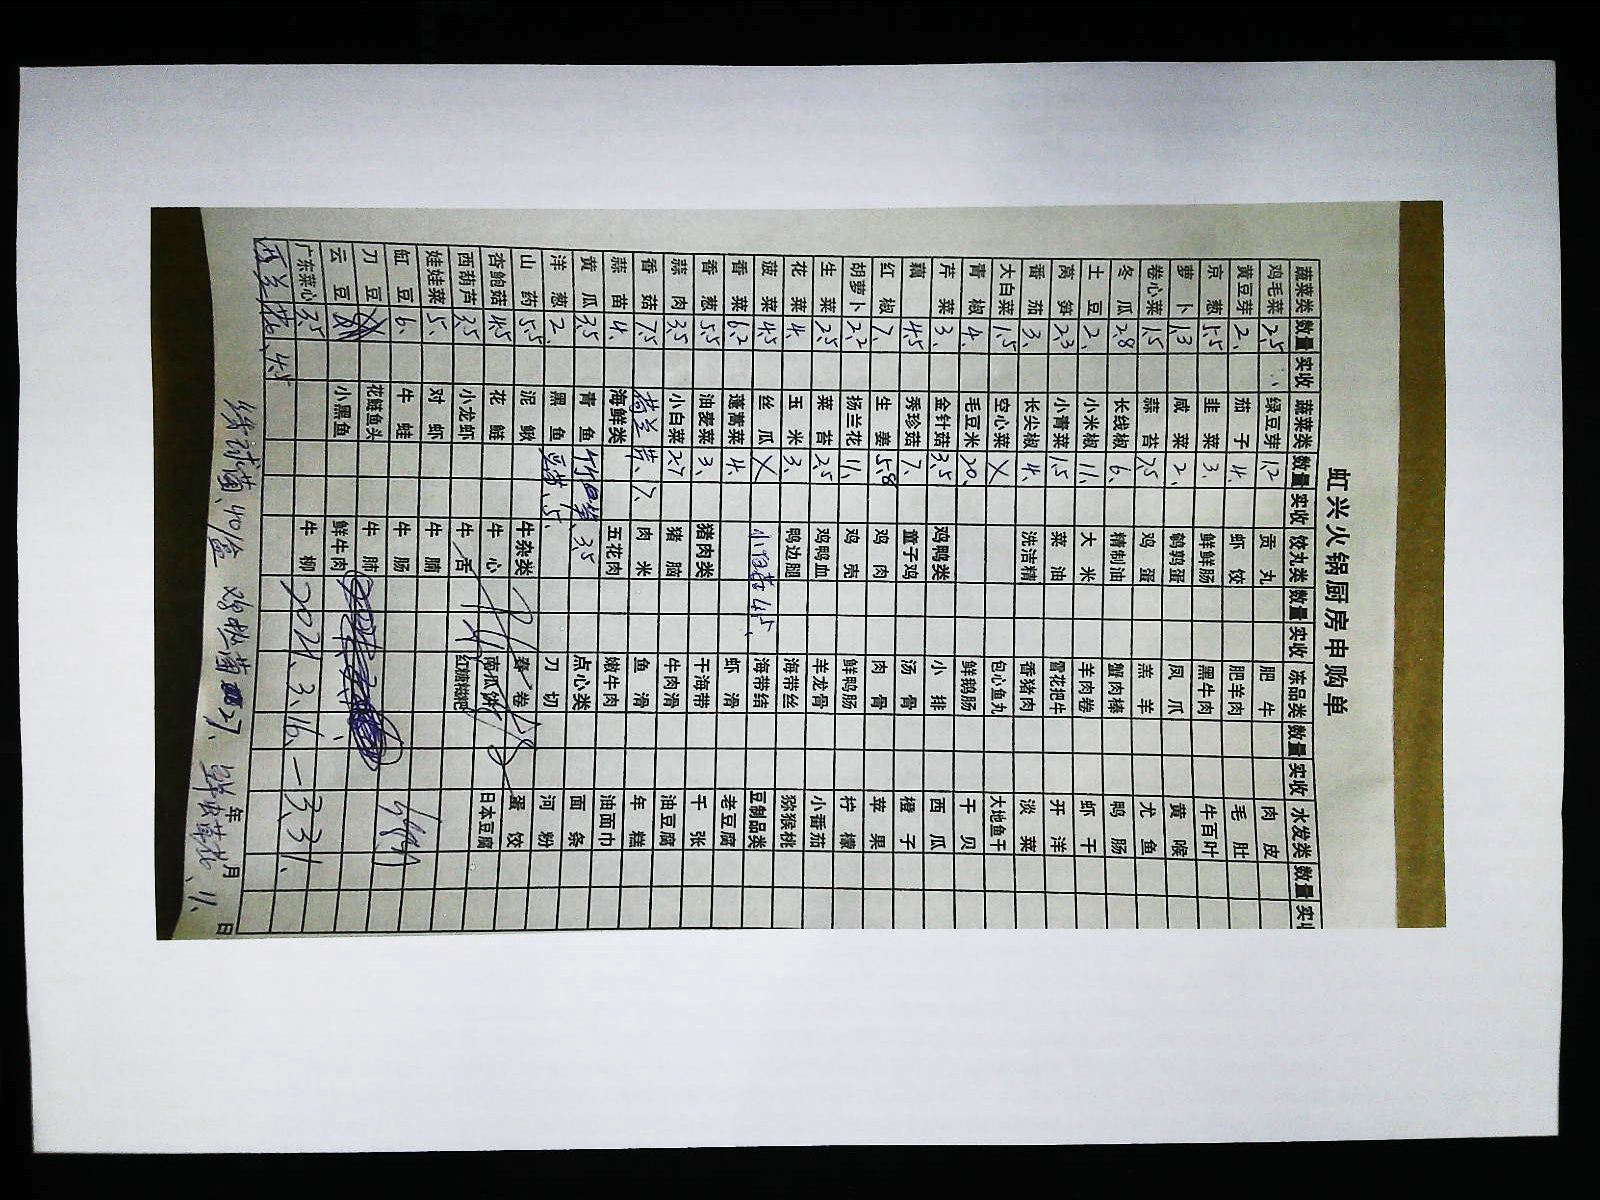 虹兴火锅厨房申购单
蔬菜类 数量 实收 蔬菜类 数量 实收 饺丸类 数量 实收 冻品类 数量 实收 水发类 数量 实收
鸡毛菜 2.5 绿豆芽 1.2 贡丸 肥牛 肉皮
黄豆芽 2、 茄子 4、 虾饺 肥羊肉 毛肚
京葱 1.5 韭菜 3、 鲜鲜肠 黑牛肉 牛百叶
萝卜 1.3 咸菜 2、 鹌鹑蛋 凤爪 黄喉
卷心菜 1.5 蒜苔 7.5 鸡蛋 羔羊 尤鱼
冬瓜 2.8 长线椒 6、 精制油 蟹肉棒 鸭肠
土豆 2、 小米椒 11、 大米 羊肉卷 虾干
莴笋 2.3 小青菜 1.5 菜油 雪花把牛 开洋
番茄 3、 长尖椒 4、 洗洁精 香猪肉 淡菜
大白菜 1.5 空心菜 X 包心鱼丸 大地鱼干
青椒 4、 毛豆米 20、 鲜鹅肠 干贝
芹菜 3、 金针菇 3.5 鸡鸭类 小排 西瓜
藕 4.5 秀珍菇 7、 童子鸡 汤骨 橙子
红椒 7、 生姜 5.8 鸡肉 肉骨 苹果
胡萝卜 2.2 扬兰花 11、 鸡壳 鲜鸭肠 柠檬
生菜 2.5 菜苔 2.5 鸡鸭血 羊龙骨 小番茄
花菜 4、 玉米 3、 鸭边腿 海带丝 猕猴桃
菠菜 4.5 丝瓜 X 4.5、 海带结 豆制品类
香菜 6.2 蓬蒿菜 4、 虾滑 老豆腐
香葱 5.5 油麦菜 3、 猪肉类 干海带 千张
蒜肉 3.5 小白菜 2.7 猪脑 牛肉滑 油豆腐
香菇 7.5 肉米 鱼滑 年糕
蒜苗 4、 海鲜类 五花肉 嫩牛肉 油面巾
黄瓜 3.5 青鱼 3.5 点心类 面条
洋葱 2、 黑鱼 豆苗、5、 刀切 河粉
山药 5.5 泥鳅 牛杂类 春卷 蛋饺
杏鲍菇 4.5 花鲢 牛心 南瓜饼 日本豆腐
西葫芦 3.5 小龙虾 牛舌 红糖糍粑
娃娃菜 5、 对虾 牛腩
缸豆 6、 牛蛙 牛肠
刀豆 X 花鲢鱼头 牛肺
云豆 小黑鱼 鲜牛肉
广东菜心 3.5 牛柳 2021.3.16.—3.31.
西兰花、4.5
年 月 日
40/盒 鸡枞菌 27、 11、